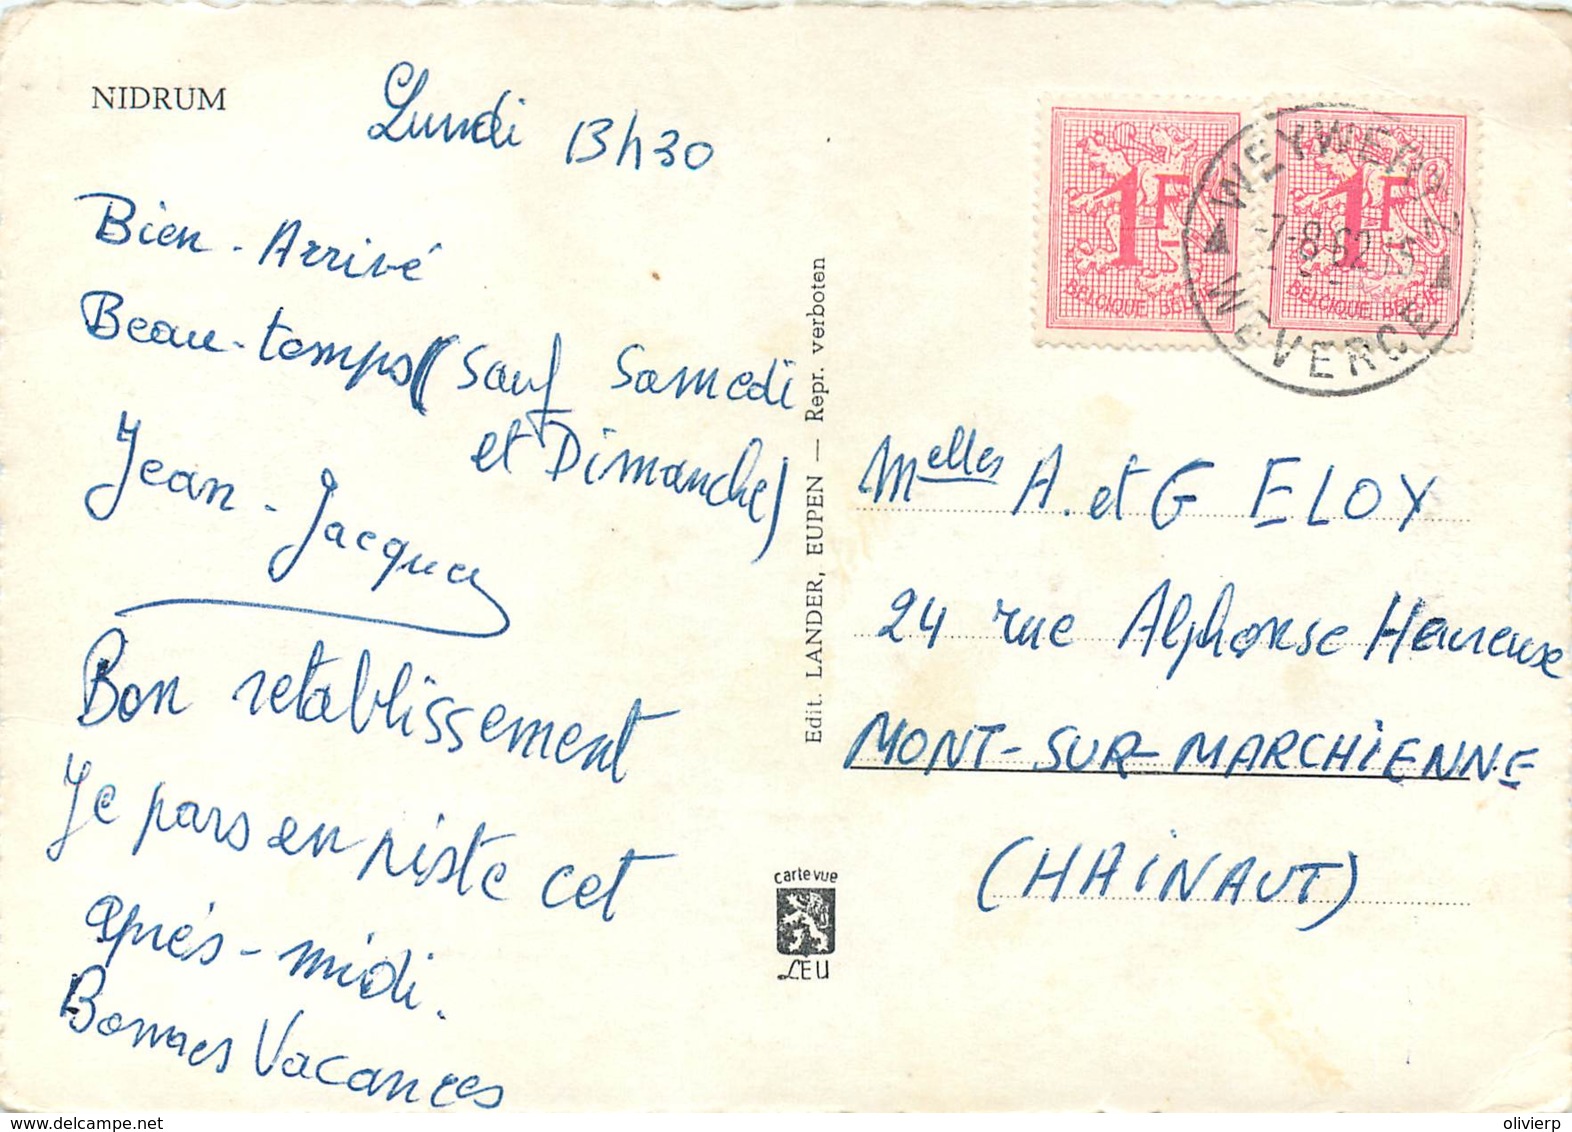 NIDRUM
Lundi 13h30
Bien-Arrivé
Beau-temps (Sauf Samedi
et Dimanche)
Jean-Jacques
Bon retablissement
Je pars en piste cet
après-midi.
Bonnes Vacances
Edit. LANDER, EUPEN — Repr. verboten
carte vue
LEU
1F
BELGIQUE BELGIE
1F
BELGIQUE BELGIE
WEYWERTZ
7-8-62
WEVERCE
Melles A. et G ELOY
24 rue Alphonse Heureuse
MONT-SUR-MARCHIENNE
(HAINAUT)
olivierp